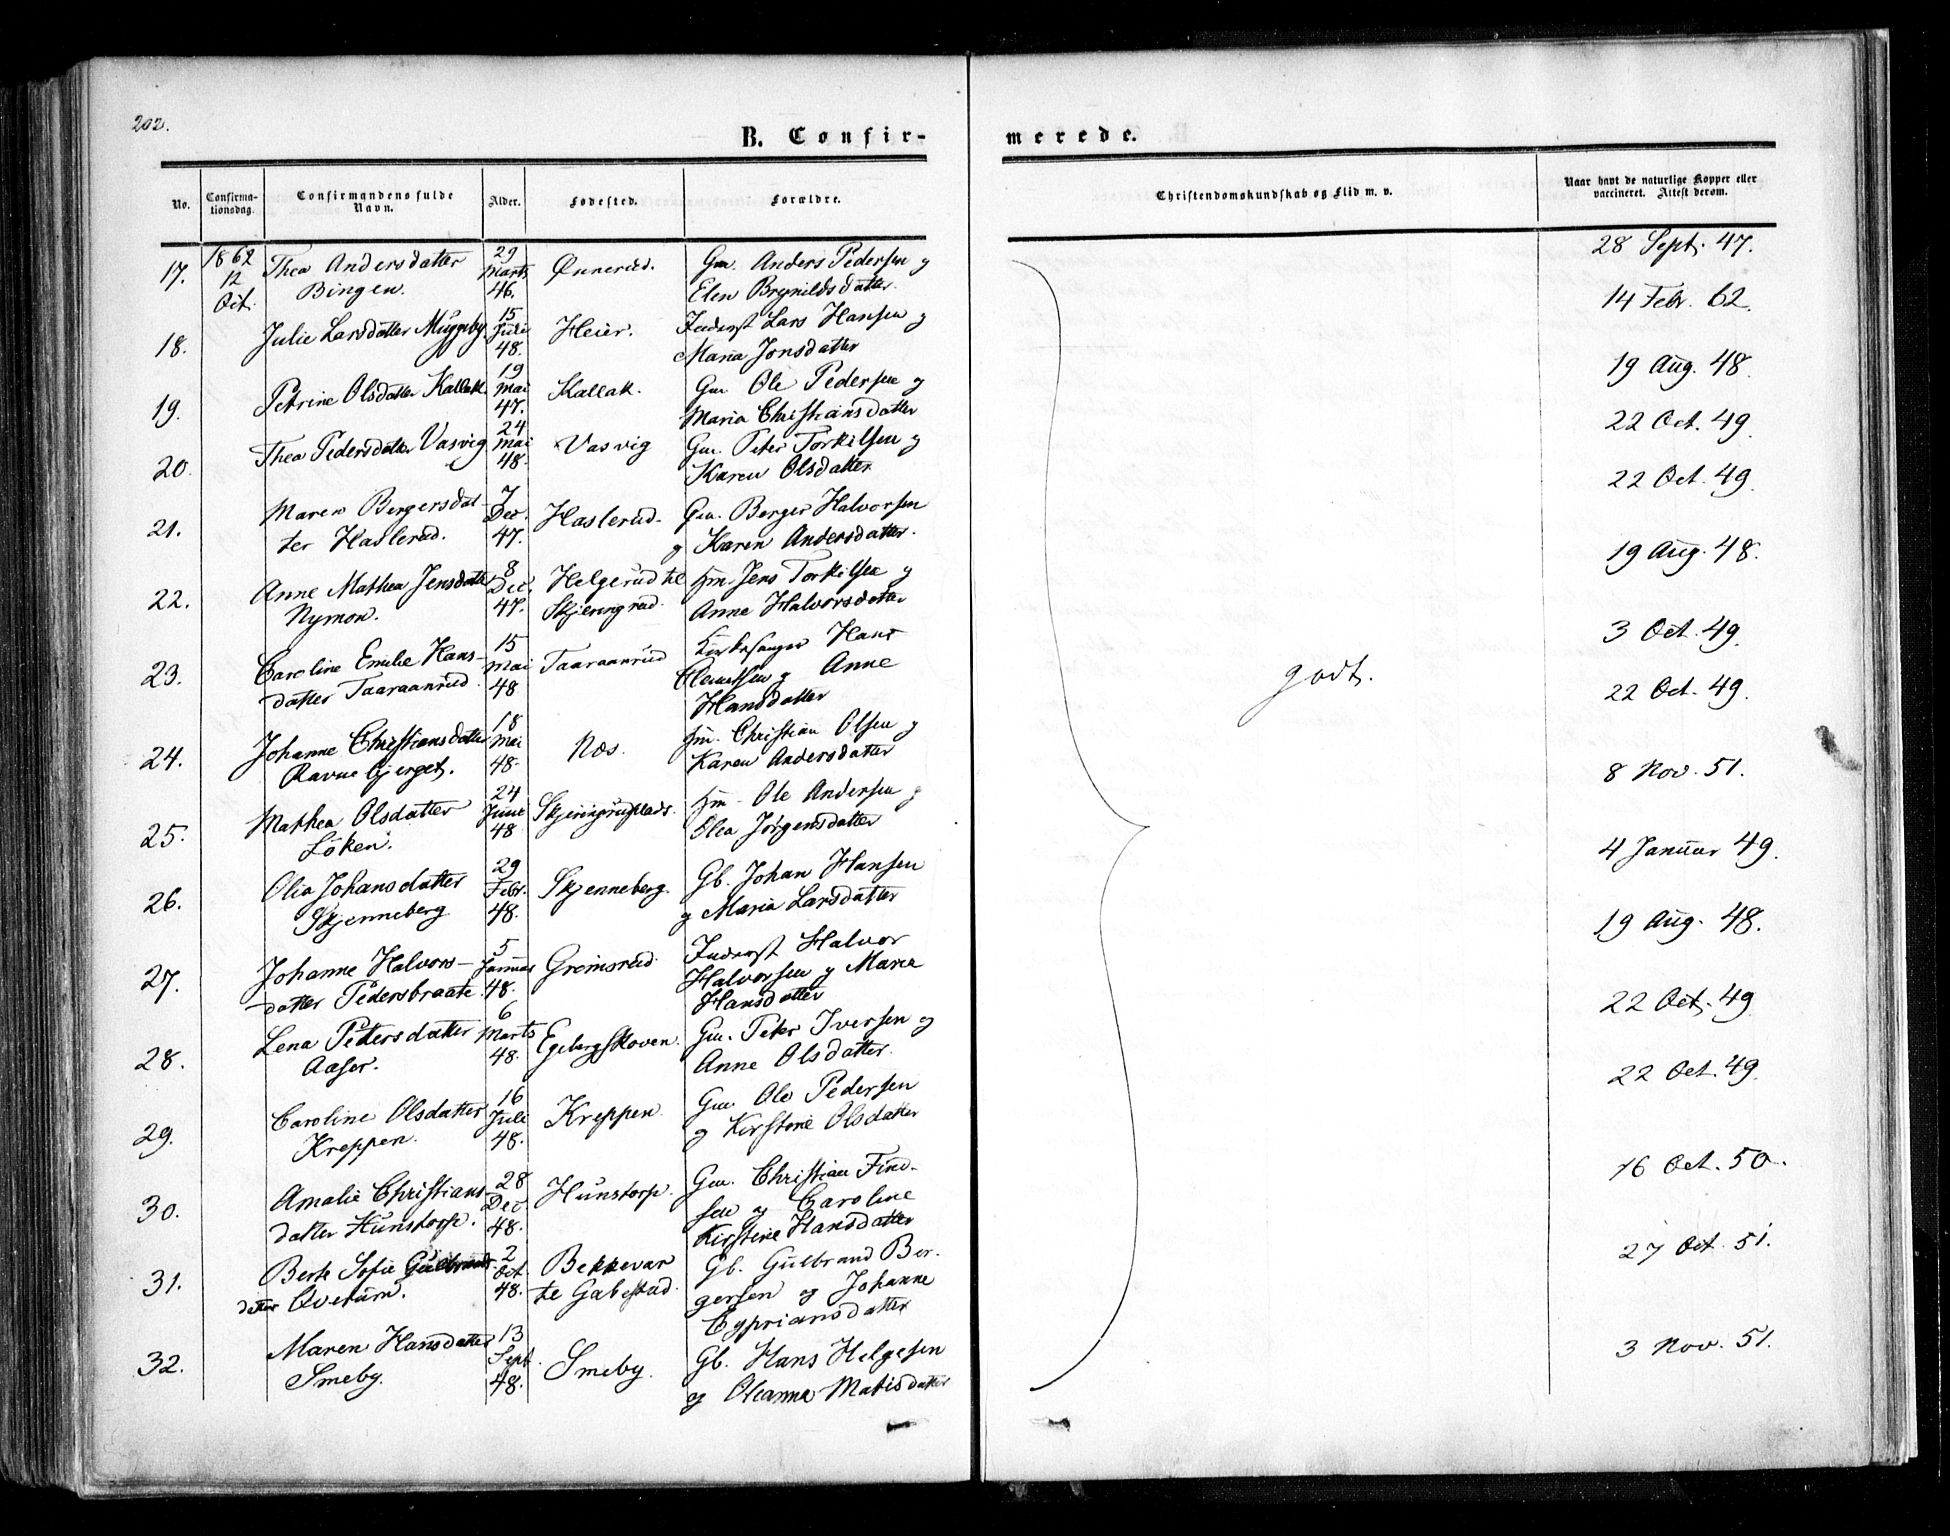 202.
B. Confirmerede.
No. Confirmationsdag. Confirmandens fulde Navn. Alder. Fødested. Forældre. Christendomskundskab og Flid m. v. Naar havt de naturlige Kopper eller vaccineret. Attest derom.
17. 1862 12 Oct. Thea Andersdatter Bingen. 29 Marts 46. Ønnerud. Gm. Anders Pedersen og Elen Brynildsdatter. 28 Sept. 47.
18. Julie Larsdatter Müggeby. 15 Juli 48. Heier. Inderst Lars Hansen og Maria Jonsdatter 14 Febr. 62.
19. Petrine Olsdatter Kallak. 19 Mai 47. Kallak. Gm Ole Pedersen og Maria Christiansdatter 19 Aug. 48.
20. Thea Pedersdatter Vasvig 24 Mai 48. Vasvig Gm. Peter Torkilsen og Karen Olsdatter 22 Oct. 49.
21. Maren Bergersdatter Haslerud. 7 Dec. 47. Haslerud. Gm. Berger Halvorsen og Karen Andersdatter. 22 Oct. 49.
22. Anne Mathea Jensdatter Nymon. 8 Dec. 47. Helgerud til Skjeringrud. Hm. Jens Torkilsen og Anne Halvorsdatter 19 Aug. 48.
23. Caroline Emilie Hansdatter Taaraanrud. 15 Mai 48 Taaraanrud Kirkesanger Hans Clemetsen og Anne Hansdatter 3 Oct. 49.
godt.
24. Johanne Christiansdatter Ravnebjerget. 18 Mai 48. Næs. Hm. Christian Olsen og Karen Andersdatter 22 Oct. 49.
25. Mathea Olsdatter Löken. 24 Juni 48 Hm. Ole Andersen og Olea Jörgensdatter 8 Nov. 51.
26. Olia Johansdatter Skjenneberg 29 Febr. 48. Skjenneberg. Gb. Johan Hansen og Maria Larsdatter 4 Januar 49.
27. Johanne Halvorsdatter Pedersbraate. 5 Januar 48. Gromsrud Inderst Halvor Halvorsen og Maria Hansdatter 19 Aug. 48.
28. Lena Petersdatter Aaser. 6 Marts 48. Egebergskoven. Gm. Peter Iversen og Anne Olsdatter. 22 Oct. 49
29. Caroline Olsdatter Kreppen. 16 Juli 48. Kreppen. Gm Ole Pedersen og Kirstine Olsdatter 22 Oct. 49.
30. Amalie Christiansdatter Hunstorp. 28 Dec. 48. Hunstorp. Gm. Christian Findsen og Caroline Kirstine Hansdatter 16 Oct. 50.
31. Berte Sofie Gulbrandsdatter Qvetum. 2 Oct. 48. Bekkevar te Gabestad. Gb. Gulbrand Bergersen og Johanne Cypriansdatter 27 Oct. 51.
32. Maren Hansdatter Smeby. 13 Sept. 48. Smeby. Gb. Hans Helgesen og Oleanna Matisdatter 3 Nov. 51.